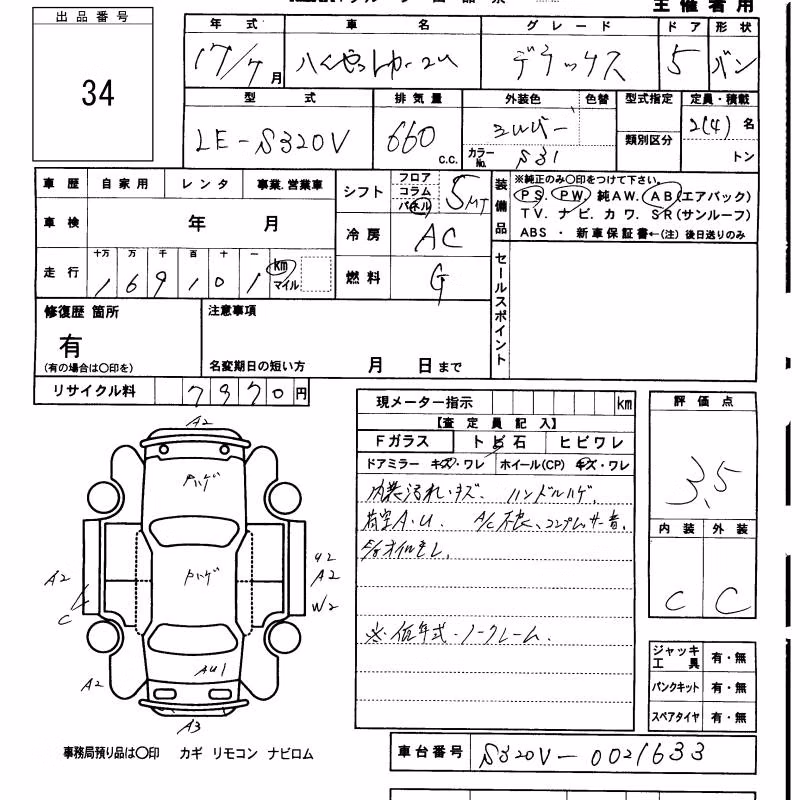 主催者用
出品番号
34
年式 車名 グレード ドア 形状
17/7月 ハイゼットカーゴ デラックス 5 バン
型式 排気量 外装色 色替 型式指定 定員・積載
LE-S320V 660 c.c. シルバー 類別区分 2(4)名
カラーNo. S31 トン
車歴 自家用 レンタ 事業.営業車
シフト フロア コラム パネル 5MT
装備品 ※純正のみ〇印をつけて下さい。
PS. PW. 純AW. AB(エアバック)
TV. ナビ. カワ. SR(サンルーフ)
ABS ・ 新車保証書←(注) 後日送りのみ
車検 年 月
冷房 AC
走行 十万 万 千 百 十 一
169101 km マイル
燃料 G
セールスポイント
修復歴 箇所
有
(有の場合は〇印を)
注意事項
名変期日の短い方 月 日まで
リサイクル料 7970円
現メーター指示 km
【査定員記入】
Fガラス トビ石 ヒビワレ
ドアミラー キズ・ワレ ホイール(CP) キズ・ワレ
内装汚れ・キズ. ハンドルハゲ.
荷室A.U. A/C不良、コンプレッサー音.
オイルモレ.
※.低年式.ノークレーム.
評価点
3.5
内装 外装
C C
ジャッキ工具 有・無
パンクキット 有・無
スペアタイヤ 有・無
A2
Pハゲ
Pハゲ
A2
C
U2
A2
W2
A2
AU1
A3
事務局預り品は〇印 カギ リモコン ナビロム
車台番号 S320V-0021633